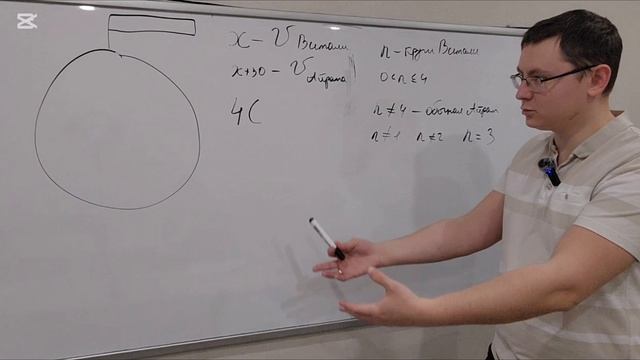 x – v Витали
x+30 – v Айрата
4(
n – круги Витали
0<n≤4
n ≠ 4 – обычная Айрат
n ≠ 1 n ≠ 2 n = 3